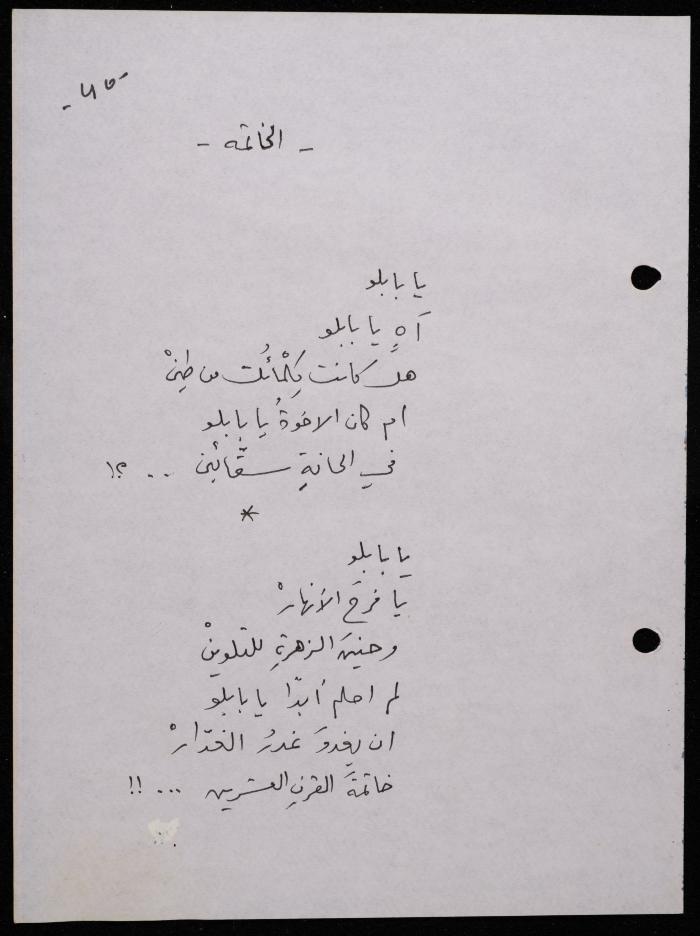 - الخاتمة -
يا بابلو
آهٍ يا بابلو
هل كانت كلماتُك من طينْ
ام كان الاخوةُ يا بابلو
في الحانةِ سقّائين .. ؟!
*
يا بابلو
يا فرحَ الأنهارْ
وحنينَ الزهرةِ للتلوينْ
لم احلم أبدًا يا بابلو
ان يغدوَ غدرُ الغدّارْ
خاتمةَ القرنِ العشرين ... !!